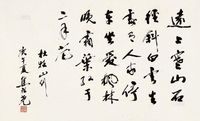 遠上寒山石
徑斜白雲生
處有人家停
車坐愛楓林
晚霜葉紅于
二月花
杜牧山行
庚午夏